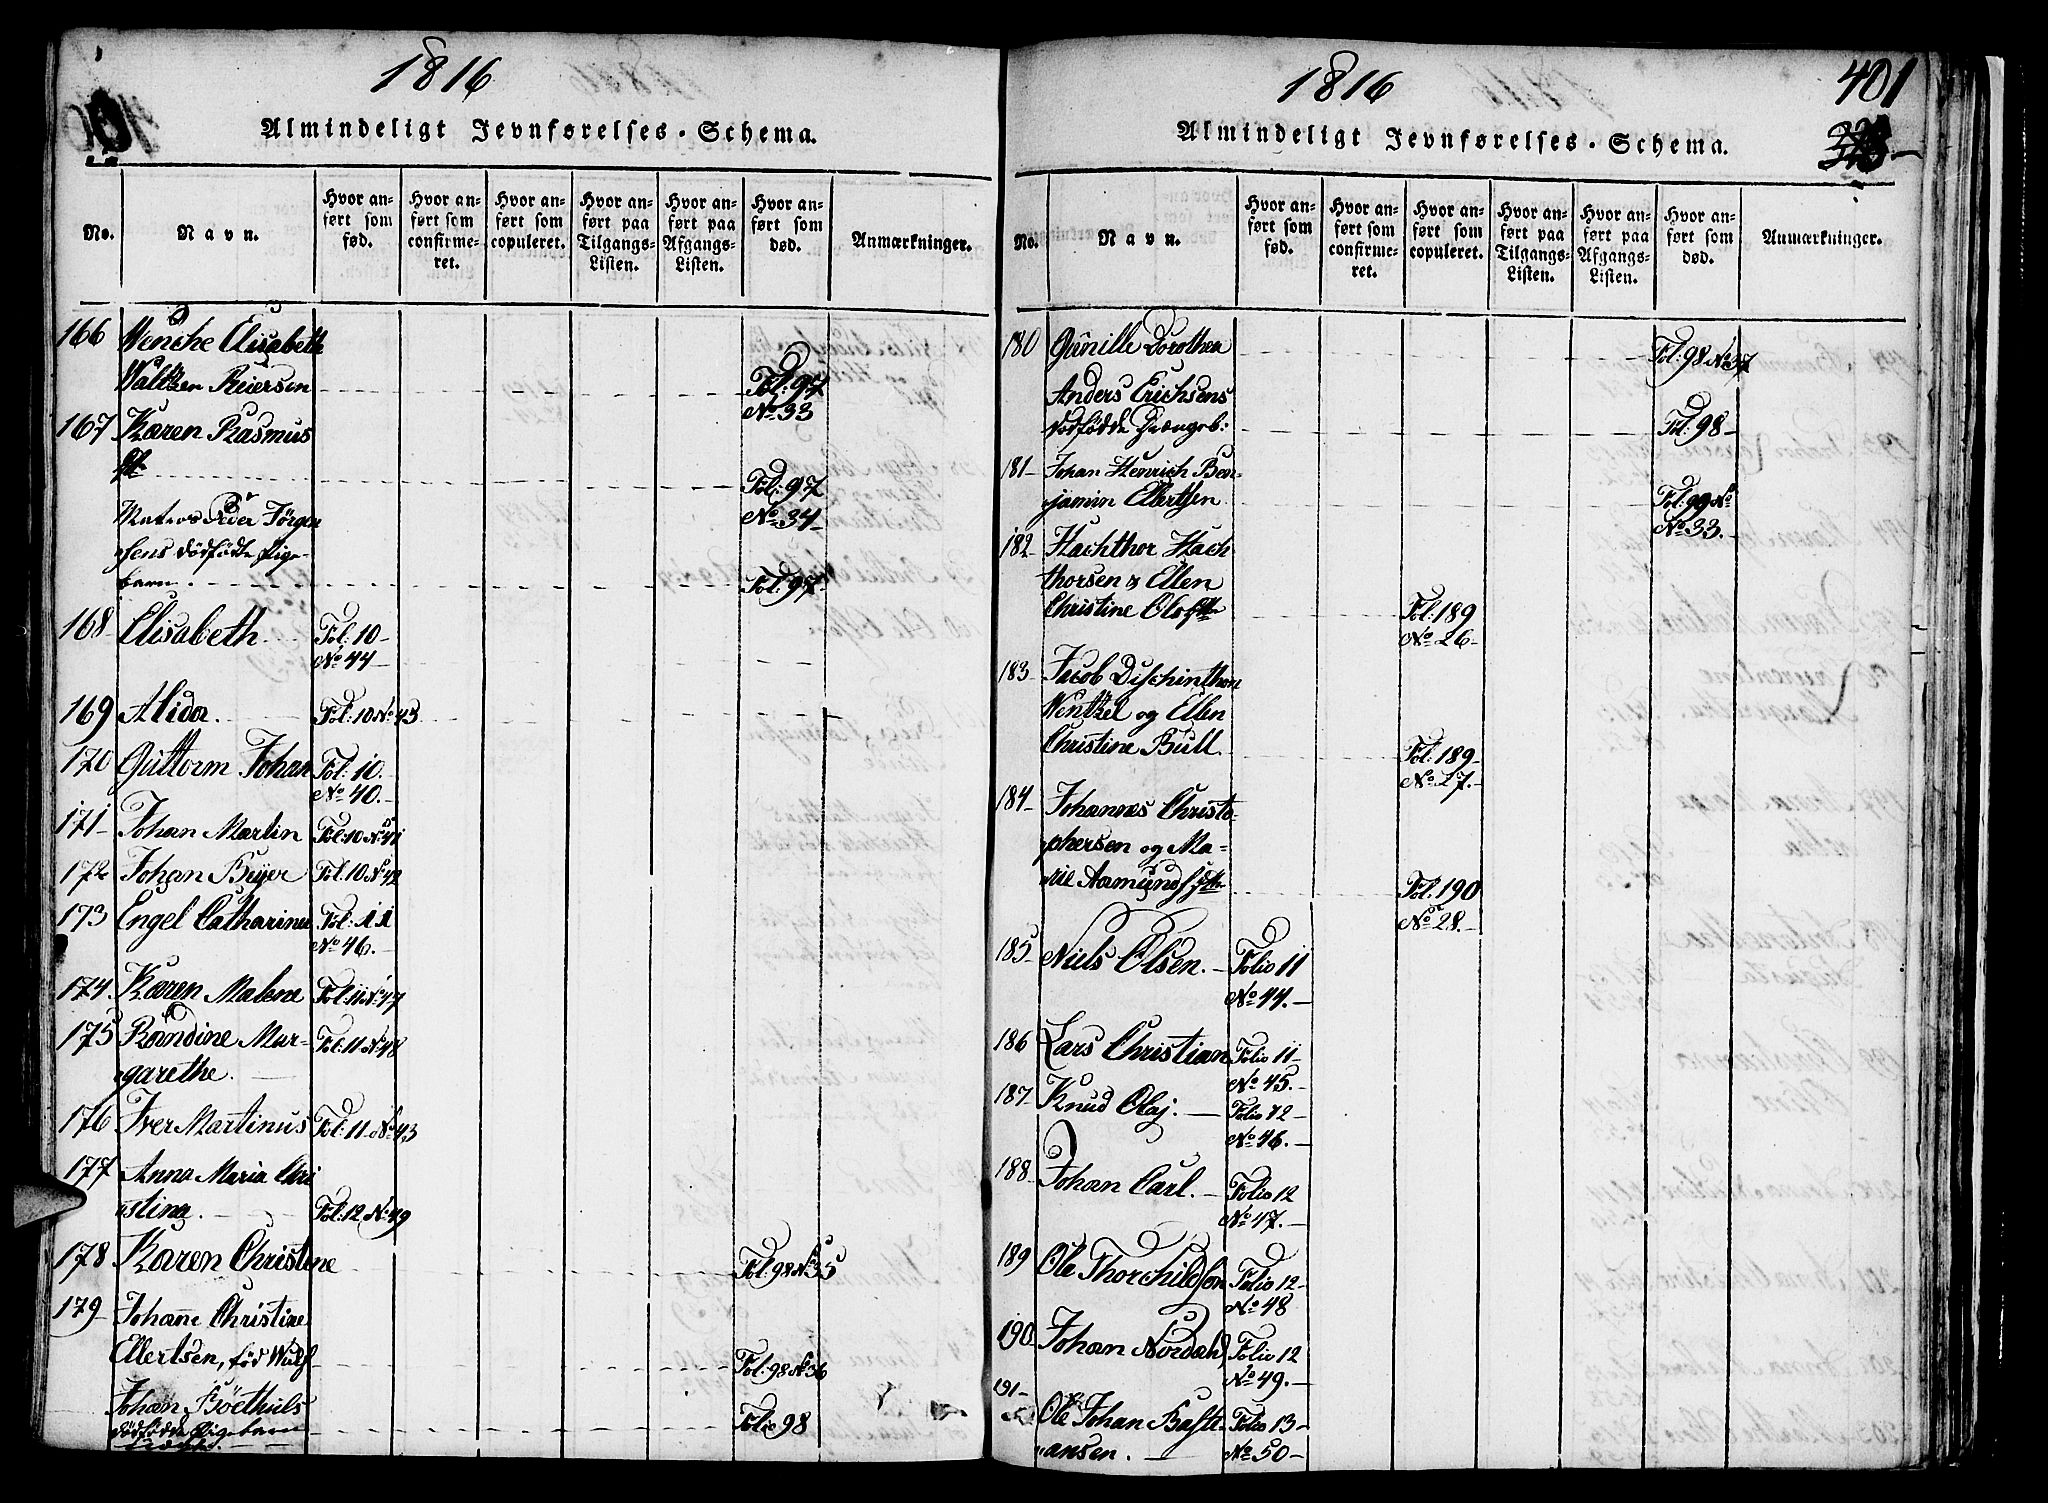 1816
Almindeligt Jevnførelses-Schema.
No.
Navn.
Hvor an-
ført som
fød.
Hvor an-
ført som
confirme-
ret.
Hvor an-
ført som
copuleret.
Hvor an-
ført paa
Tilgangs-
Listen.
Hvor an-
ført paa
Afgangs-
Listen.
Hvor an-
ført som
død.
Anmærkninger.
166 Wenche Elisabeth
Waltzen Reiersen Fol: 97
No 33
167 Karen Rasmus
Fol: 97
No 34
Matros Peder Jørgen
sens dödfödte Pige-
barn. Fol: 97
168 Elisabeth Fol: 10
No 44
169 Alida. Fol: 10 No 43
170 Guttorm Johan Fol: 10.
No 40.
171 Johan Martin Fol: 10 No 41
172 Johan Beyer Fol: 10 No 42
173 Engel Catharina Fol: 11
No 46.
174 Karen Malene Fol: 11 No 47
175 Randine Mar-
garethe. Fol: 11 No 48
176 Iver Martinus Fol: 11 No 43
177 Anna Maria Chri
stina. Fol: 12 No 49
178 Karen Christine Fol: 98 No 35
179 Johanne Christine
Ellertsen, föd Wulf Fol: 98 No 36
Johan Böethuls
dödfödde Pigebarn Folie 98
1816
401
Almindeligt Jevnførelses-Schema.
No.
Navn.
Hvor an-
ført som
fød.
Hvor an-
ført som
confirme-
ret.
Hvor an-
ført som
copuleret.
Hvor an-
ført paa
Tilgangs-
Listen.
Hvor an-
ført paa
Afgangs-
Listen.
Hvor an-
ført som
død.
Anmærkninger.
180 Gunille Dorothea Fol: 98 No 37
Anders Erichsens
dodfödde Drengeb: Fol: 98
181 Johan Henrich Ben-
jamin Ellertsen Fol: 99 No
No 33.
182 Hachthor Hach
thorsen & Ellen
Christine Olsdtr Fol: 189
No 26
183 Jacob Dischinthon
Wentzel og Ellen
Christine Bull Fol: 189
No 27.
184 Johannes Christo-
phersen og Ma-
rie Aamundsdtr Fol: 190
No 28.
185 Niels Olsen. Folio 11
No 44.
186 Lars Christian Folio 11
No 45.
187 Knud Olaj. Folio 12
No 46.
188 Johan Carl. Folio 12
No 47.
189 Ole Thorchildsen Folio 12
No 48
190 Johan Nordahl Folio 12
No 49.
191 Ole Johan Basti-
ansen. Folio 13
No 50